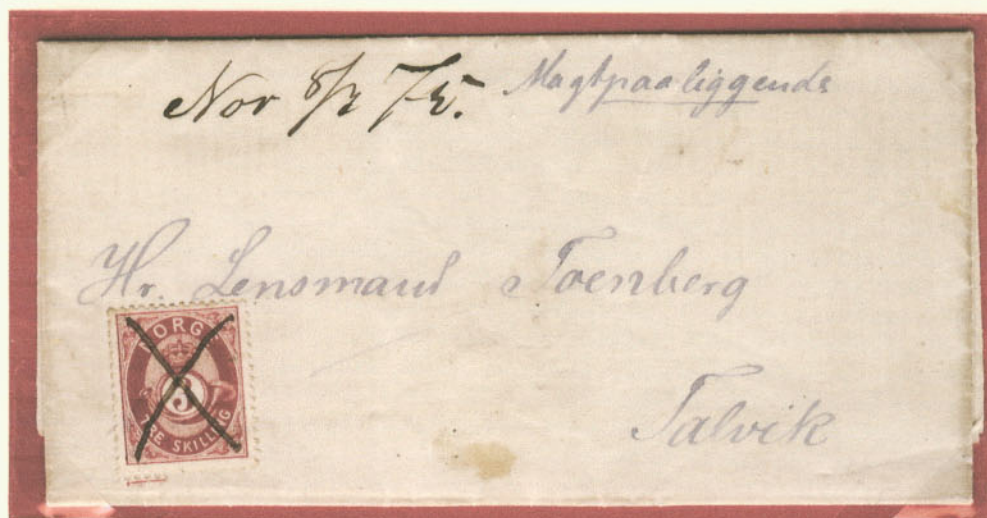 Nor 8/2 75. Magtpaaliggende
Hr. Lensmand Toenberg
Talvik
NORGE
3
TRE SKILLING